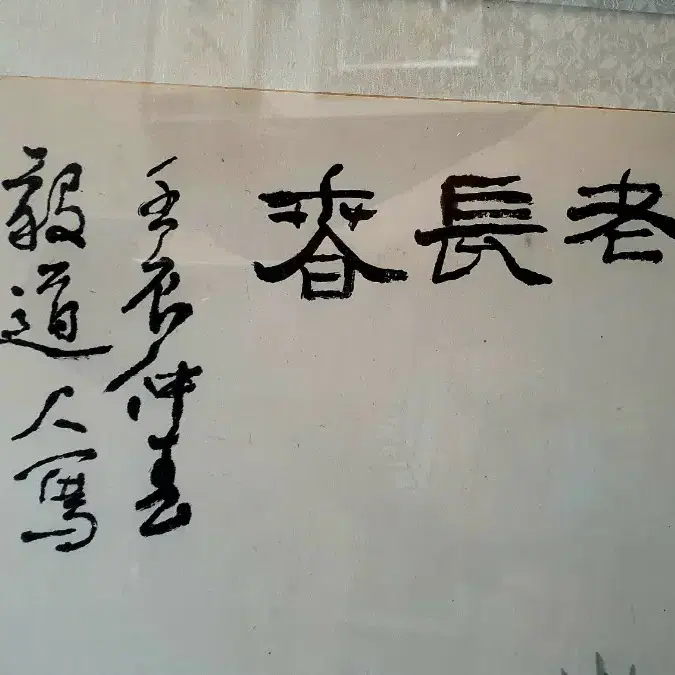 老長春
壬辰仲春
毅道人寫